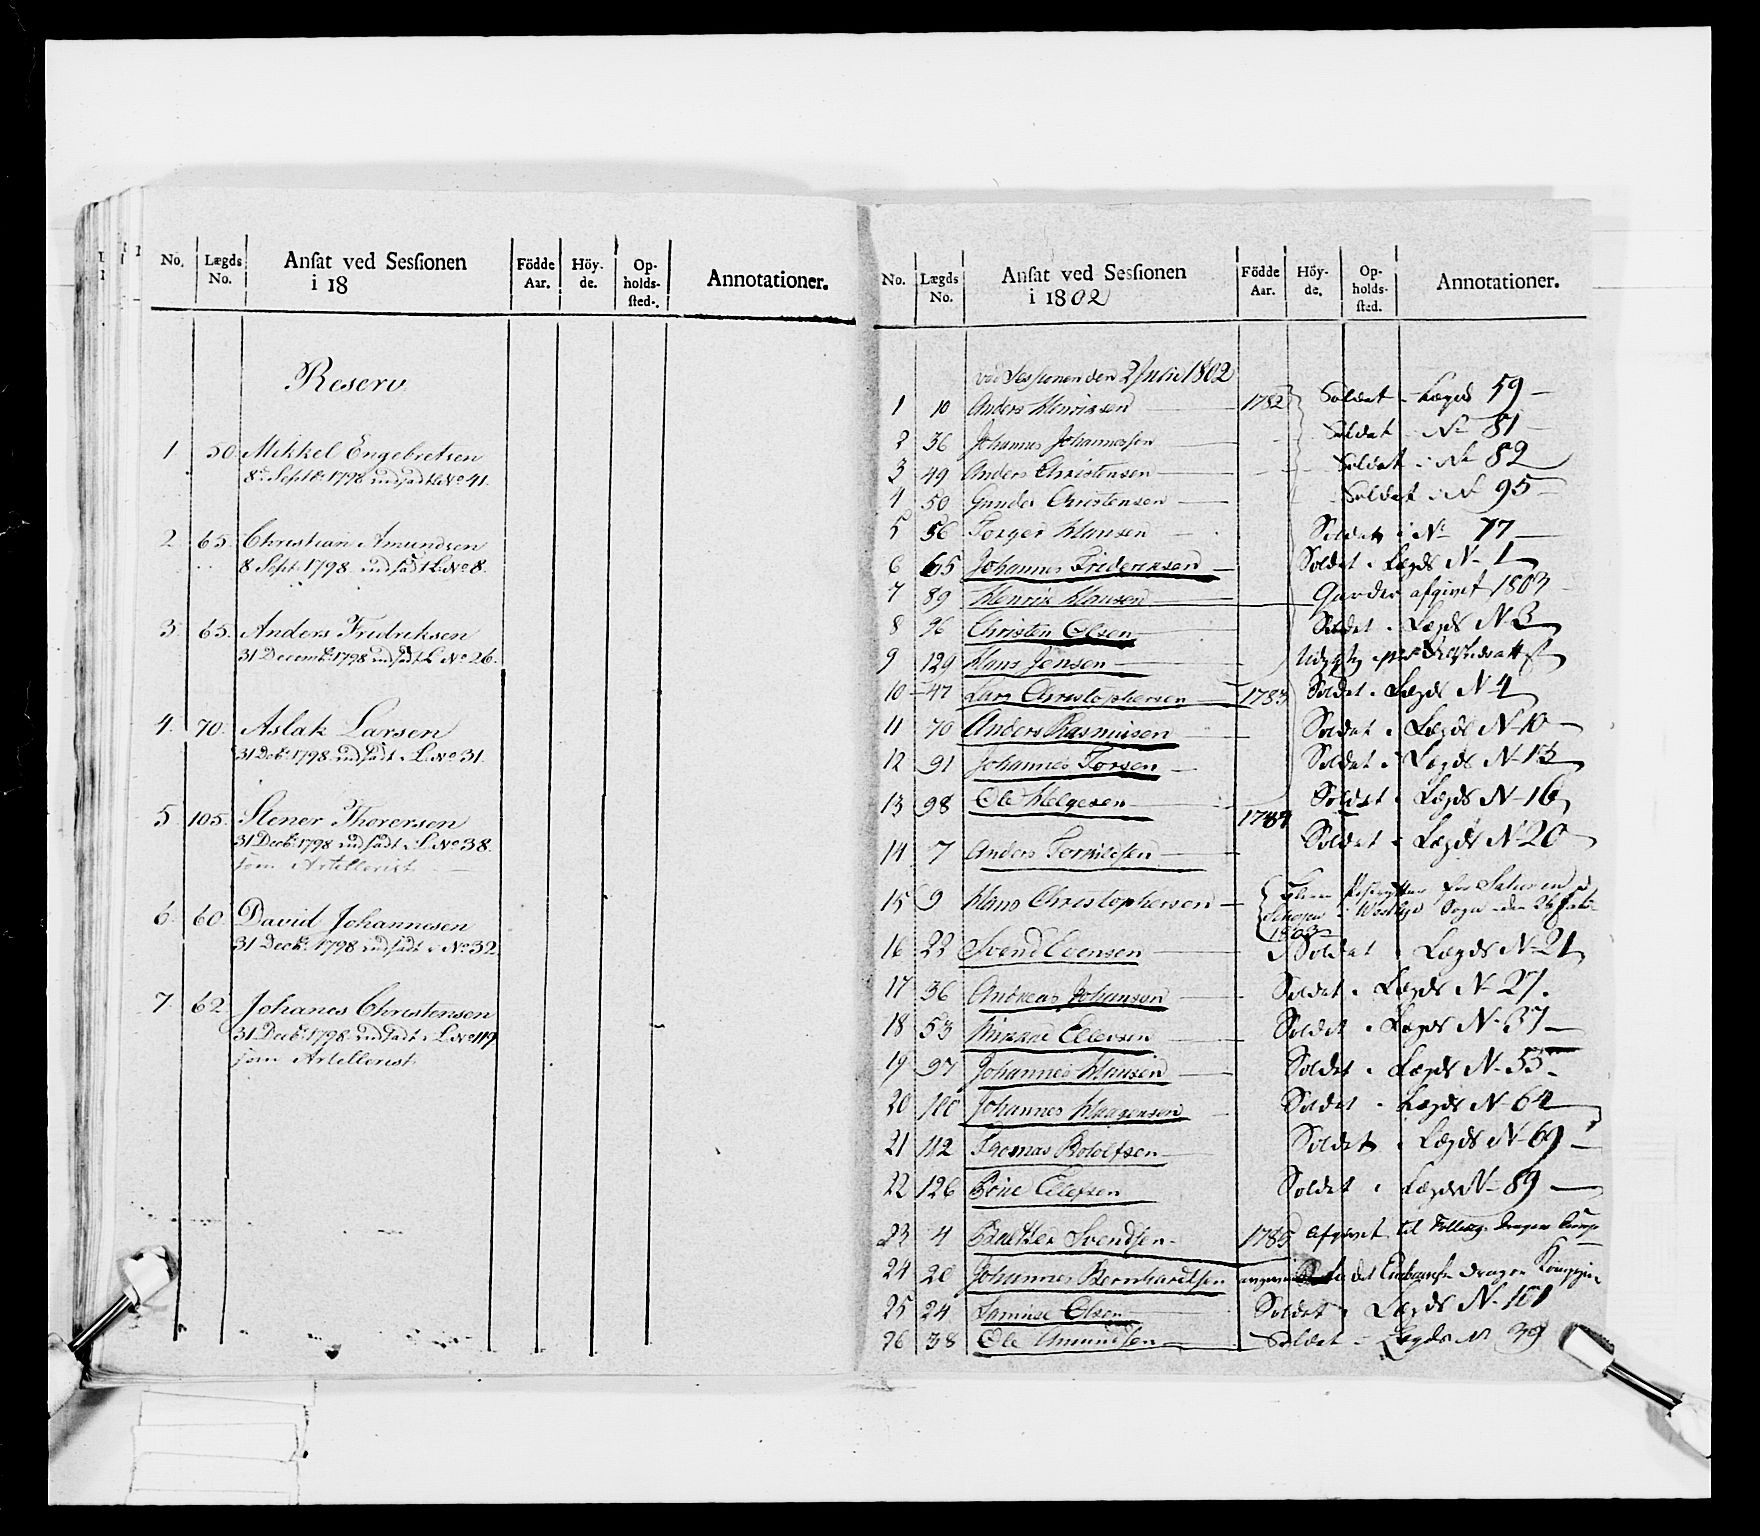 No. Lægds No. Ansat ved Sessionen i 18 Födde Aar. Höy-de. Op-holds-sted. Annotationer.
Reserv
1 50 Mikkel Engebretsen
8de Septbr 1798 indsadt L No 41.
2 65. Christian Amundsen
8 Sept. 1798 indsadt L No 8.
3 65. Anders Fredriksen
31 Decemb: 1798 indsadt L No 26.
4. 70. Aslak Larsen
31 Decb. 1798 indsadt i L. No 31.
5 105. Stener Thorersen
31 Decb: 1798 indsadt i L. No 38.
som Artellerist
6. 60 David Johannesen
31 Decb. 1798 indsadt i No 32.
7. 62. Johanes Christensen
31 Decb. 1798 indsadt i L. No 119
som Artellerist
No. Lægds No. Ansat ved Sessionen i 1802 Födde Aar. Höy-de. Op-holds-sted. Annotationer.
ved Sessionen den 2 Julii 1802
1 10 Anders Henriksen 1782 Soldat Lægd 59
2 36 Johannes Johannessen Soldat No 81
3 49 Anders Christensen Soldat i No 82
4 50 Gunder Christensen Soldat i No 95
5 56 Torger Klausen Soldat i No 77
6 65 Johannes Frideriksen Soldat i Lægds No 1
7 89 Henrik Klausen Garder afgivet 1803
8 96 Christen Olsen Soldat i Lægds No 3
9 129 Hans Jensen
10 47 Lars Christophersen 1783 Soldat i Lægds No 4
11 70 Anders Rasmusen Soldat i Lægds No 10
12 91 Johannes Torsen Soldat i Lægds No 15
13 98 Ole Helgesen Soldat i Lægds No 16
14 7 Anders Torkildsen 1784 Soldat i Lægds No 20
15 9 Hans Christophersen i Sogn den 26 1803
16 22 Svend Evensen Soldat i Lægds No 21
17 36 Andreas Johansen Soldat i Lægds No 27.
18 53 Ellevsen Soldat i Lægds No 37
19 97 Johannes Klausen Soldat i Lægds No 55
20 100 Johannes Haagensen Soldat i Lægds No 64
21 112 Thomas Rolofsen Soldat i Lægds No 69
22 126 Ellefsen Soldat i Lægds No 89
23 4 Svendsen 1785 Afgivet til Dragon Comp
24 20 Johannes Bernhardtsen det Dragon Kompagnie
25 24 Olsen Soldat i Lægds No 101
26 38 Ole Amundsen Soldat i Lægds No 39